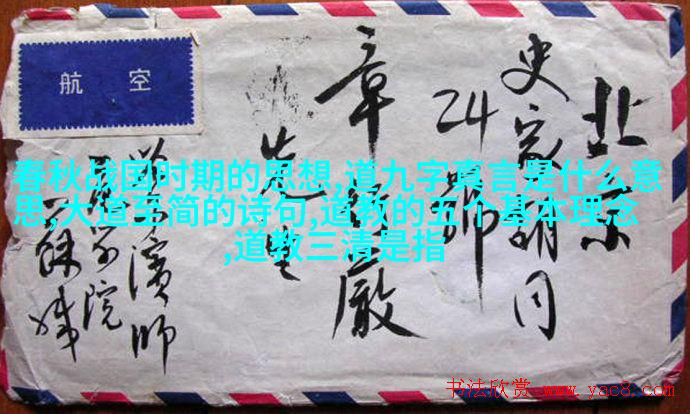 航 空
北京
史家胡同
24
章
先生
濱師
学院
春秋战国时期的思想,道九字真言是什么意
思,大道至简的诗句,道教的五个基本理念
,道教三清是指
书法欣赏 www.yac8.com